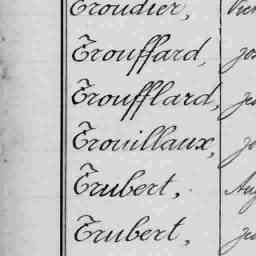 Troudier,
Trouffard,
Troufflard,
Trouillaux,
Trubert,
Trubert,